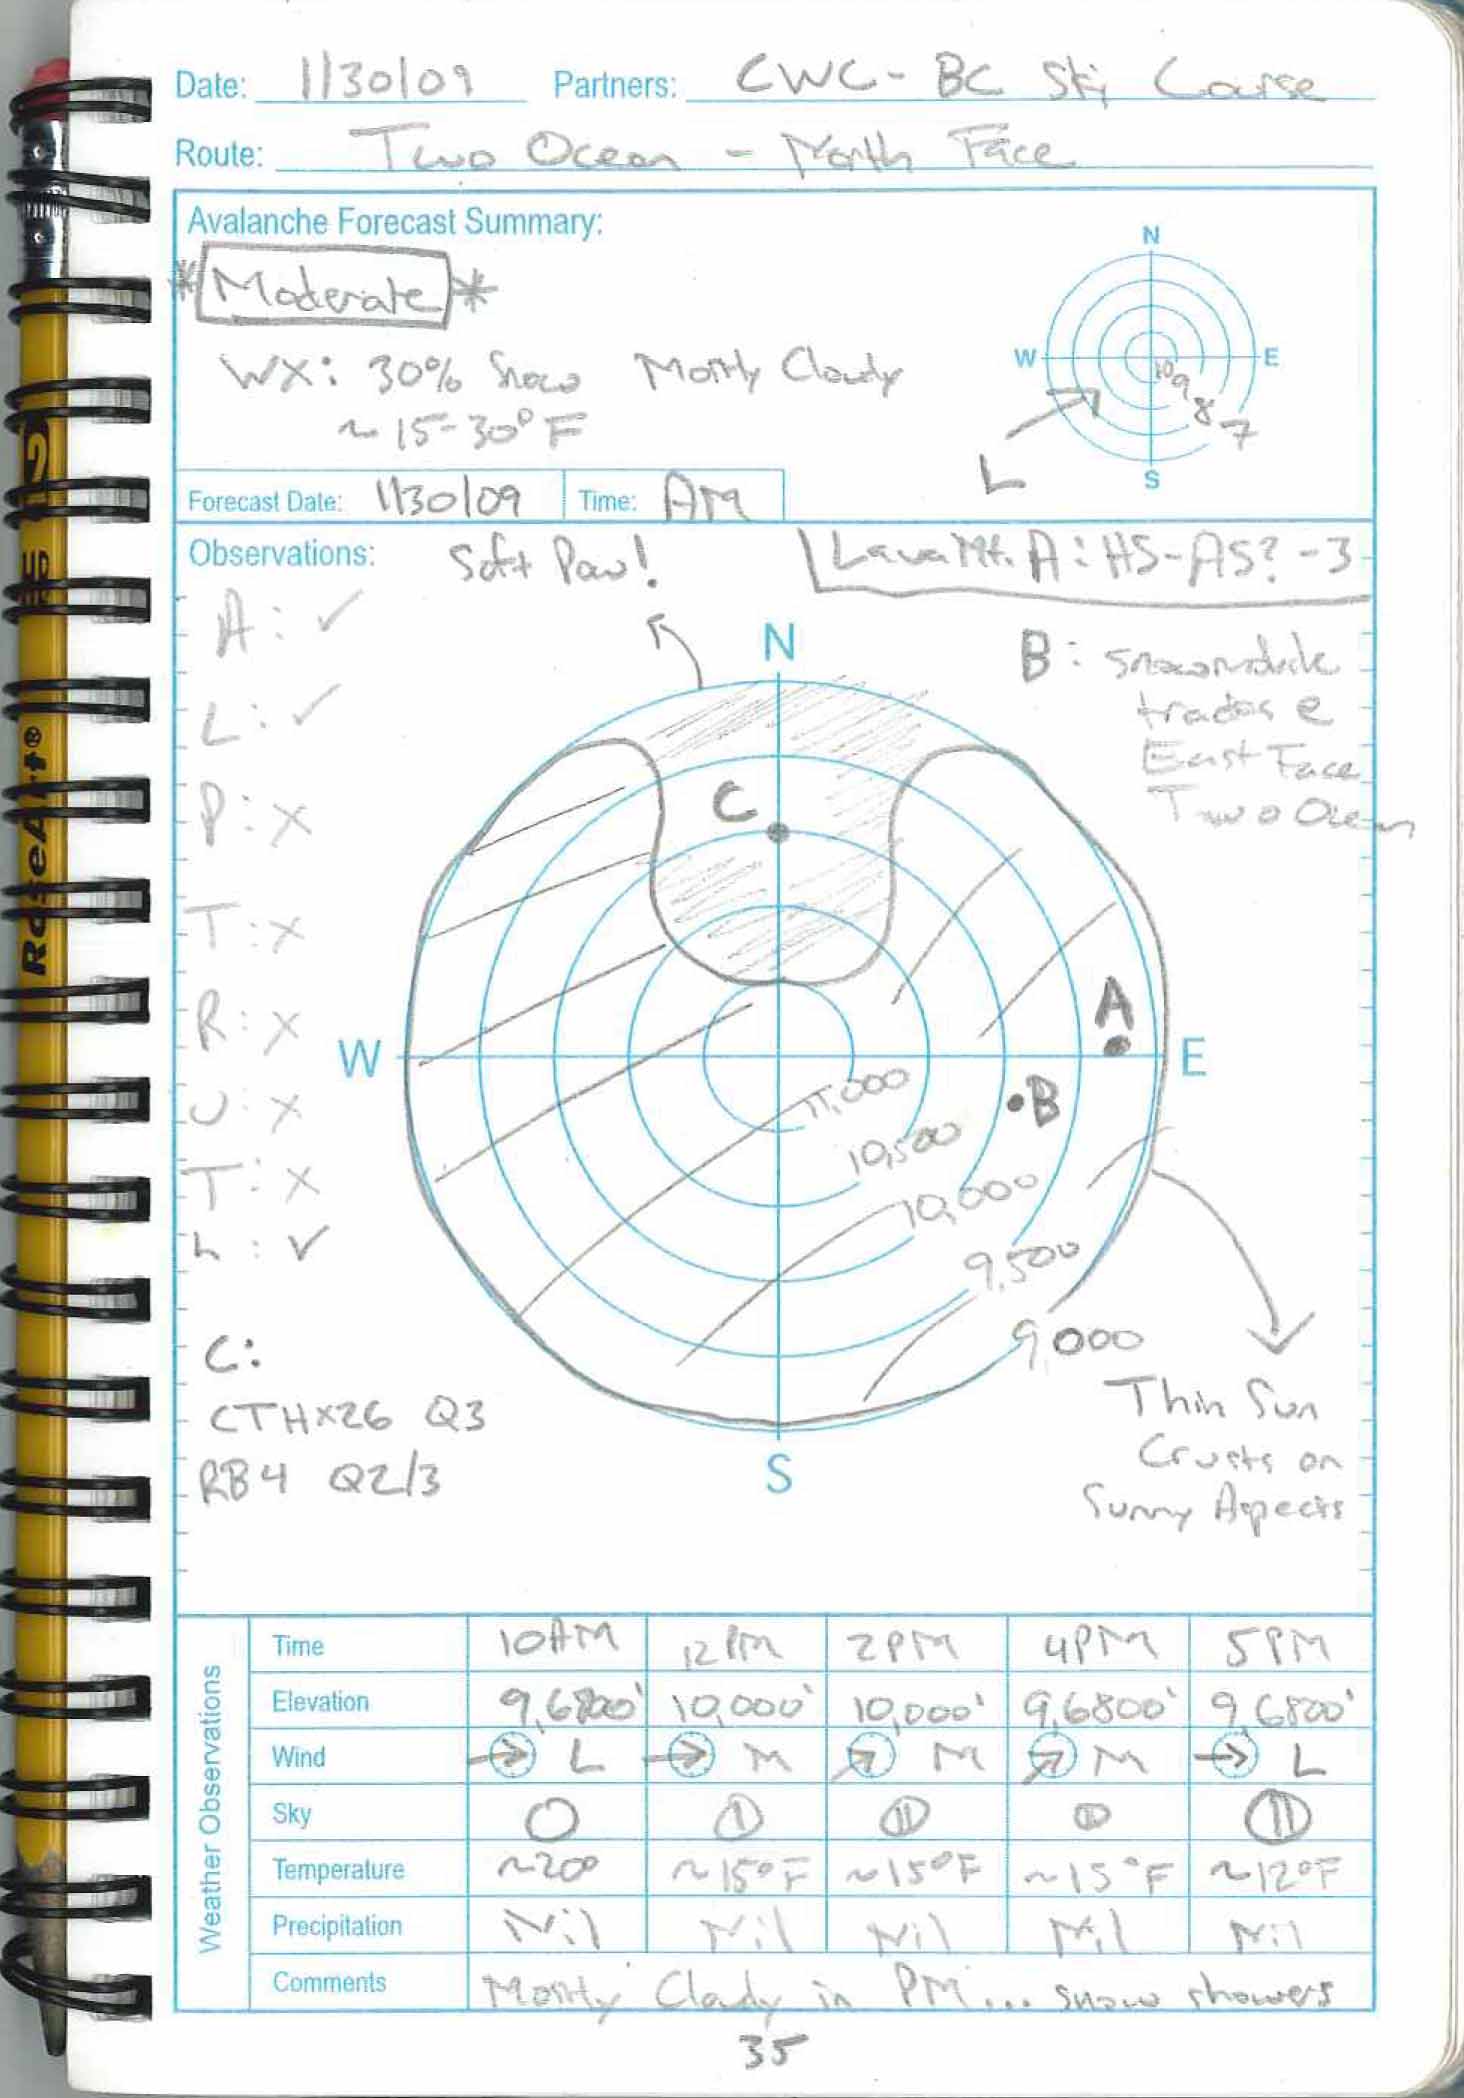 Date: 1/30/09 Partners: CWC - BC Ski Course
Route: Two Ocean - North Face
Avalanche Forecast Summary:
* Moderate *
WX: 30% Snow Mostly Cloudy
~ 15-30°F
N
W E
S
10 9 8 7
L
Forecast Date: 1/30/09 Time: AM
Observations: Soft Pow! Lava Mt. A: HS-AS?-3
A: ✓
L: ✓
P: X
T: X
R: X
U: X
T: X
h: ✓
B: snowmobile
tracks e
East Face
Two Ocean
N
C
A
W E
B
11,000
10,500
10,000
9,500
9,000
S
C:
CTHX26 Q3
RB4 Q2/3
Thin Sun
Crusts on
Sunny Aspects
Weather Observations
Time 10AM 12PM 2PM 4PM 5PM
Elevation 9,6800' 10,000' 10,000' 9,6800' 9,6800'
Wind → L → M ↗ M ↗ M → L
Sky
Temperature ~20° ~15°F ~15°F ~15°F ~12°F
Precipitation Nil Nil Nil Nil Nil
Comments Mostly Cloudy in PM... snow showers
35
RoseArt®
2